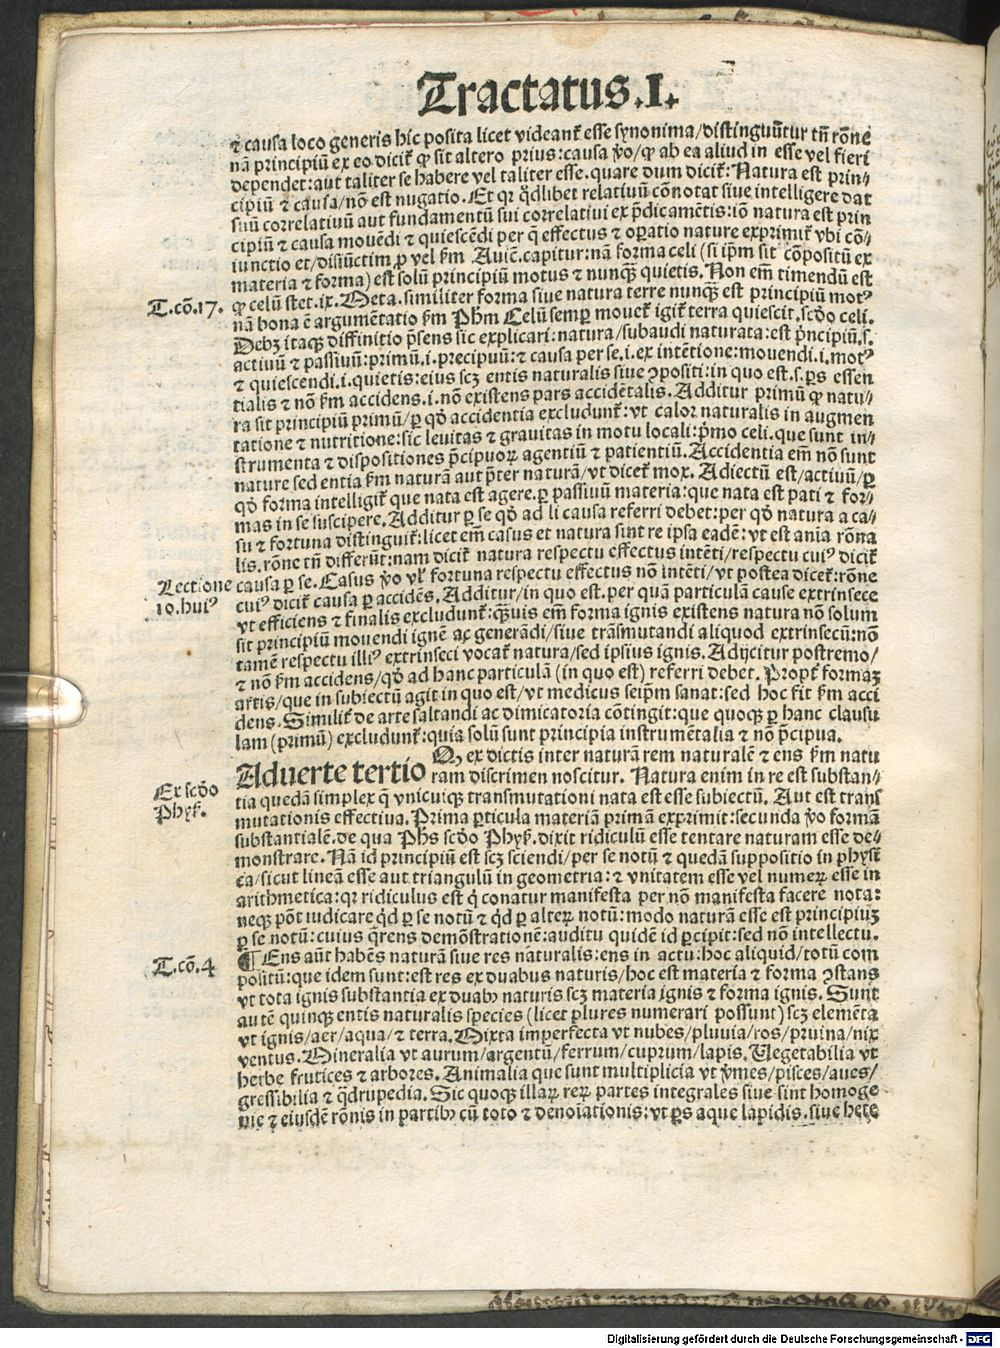 Tractatus.I.
⁊ causa loco generis hic posita licet videant̃ esse synonima/distinguũtur tñ rõne
nã principiũ ex eo dicit̃ ꝙ sit altero prius:causa v̊o/ꝙ ab ea aliud in esse vel fieri
dependet:aut taliter se habere vel taliter esse.quare dum dicit̃: Natura est prin//
cipiũ ⁊ causa/nõ est nugatio. Et qꝛ q̃dlibet relatiuũ cõnotat siue intelligere dat
suũ correlatiuũ aut fundamentũ sui correlatiui ex p̃dicamẽtis:iõ natura est prin
cipiũ ⁊ causa mouẽdi ⁊ quiescẽdi per q̃ effectus ⁊ oꝑatio nature exprimit̃ vbi cõ//
iunctio et/disiũctim ꝓ vel k̃m Auic̃.capitur:nã forma celi (si ip̃m sit cõpositũ ex
materia ⁊ forma) est solũ principiũ motus ⁊ nunqꝫ quietis. Non em̃ timendũ est
T.cõ.17. ꝙ celũ stet.ix.Meta.similiter forma siue natura terre nunqꝫ est principiũ motꝰ
nã bona ẽ argumẽtatio k̃m Ph̃m Celũ semꝑ mouet̃ igit̃ terra quiescit.scd̃o celi.
Debꝫ itaqꝫ diffinitio p̃sens sic explicari:natura/subaudi naturata:est p̃ncipiũ.s.
actiuũ ⁊ passiuũ:primũ.i.precipuũ:⁊ causa per se.i.ex intẽtione:mouendi.i.motꝰ
⁊ quiescendi.i.quietis:eius scꝫ entis naturalis siue ꝯpositi:in quo est.s.ꝑs essen
tialis ⁊ nõ k̃m accidens.i.nõ existens pars accidẽtalis. Additur primũ ꝙ natu//
ra sit principiũ primũ/ꝑ qd̃ accidentia excludunt̃:vt calor naturalis in augmen
tatione ⁊ nutritione:sic leuitas ⁊ grauitas in motu locali:p̃mo celi.que sunt in//
strumenta ⁊ dispositiones p̃cipuoꝝ agentiũ ⁊ patientiũ. Accidentia em̃ nõ sunt
nature sed entia k̃m naturã aut p̃ter naturã/vt dicet̃ mox. Adiectũ est/actiuũ/ꝑ
qd̃ forma intelligit̃ que nata est agere.ꝑ passiuũ materia:que nata est pati ⁊ for//
mas in se suscipere. Additur ꝑ se qd̃ ad li causa referri debet:per qd̃ natura a ca//
su ⁊ fortuna distinguit̃:licet em̃ casus et natura sint re ipsa eadẽ:vt est anĩa rõna
lis.rõne tñ differũt:nam dicit̃ natura respectu effectus intẽti/respectu cuiꝰ dicit̃
Lectione causa ꝑ se. Casus v̊o vl̃ fortuna respectu effectus nõ intẽti/vt postea dicet̃:rõne
10.huiꝰ cuiꝰ dicit̃ causa ꝑ accidẽs. Additur/in quo est.per quã particulã cause extrinsece
vt efficiens ⁊ finalis excludunt̃:qꝫuis em̃ forma ignis existens natura nõ solum
sit principiũ mouendi ignẽ ac generãdi/siue trãsmutandi aliquod extrinsecũ:nõ
tamẽ respectu illiꝰ extrinseci vocat̃ natura/sed ipsius ignis. Adijcitur postremo/
⁊ nõ k̃m accidens/qd̃ ad hanc particulã (in quo est) referri debet. Propt̃ formaꝫ
artis/que in subiectũ agit in quo est/vt medicus seip̃m sanat:sed hoc fit k̃m acci
dens. Similit̃ de arte saltandi ac dimicatoria cõtingit:que quoqꝫ ꝑ hanc clausu
lam (primũ) excludunt̃:quia solũ sunt principia instrumẽtalia ⁊ nõ p̃cipua.
Aduerte tertio Q, ex dictis inter naturã rem naturalẽ ⁊ ens k̃m natu
ram discrimen noscitur. Natura enim in re est substan//
Ex scd̃o tia quedã simplex q̃ vnicuiqꝫ transmutationi nata est esse subiectũ. Aut est trans
Phyẜ. mutationis effectiua. Prima ꝑticula materiã primã exprimit:secunda v̊o formã
substantialẽ.de qua Ph̃s scd̃o Phyẜ.dixit ridiculũ esse tentare naturam esse de//
monstrare. Nã id principiũ est scꝫ sciendi/per se notũ ⁊ quedã suppositio in physi
ca/sicut lineam esse aut triangulũ in geometria:⁊ vnitatem esse vel numeꝝ esse in
arithmetica:qꝛ ridiculus est q̇ conatur manifesta per nõ manifesta facere nota:
neqꝫ põt iudicare q̇d ꝑ se notũ ⁊ q̇d ꝑ alteꝝ notũ:modo naturã esse est principiuꝫ
ꝑ se notũ:cuius q̃rens demõstrationẽ:auditu quidẽ id ꝑcipit:sed nõ intellectu.
T.cõ.4 ¶ Ens aũt habẽs naturã siue res naturalis:ens in actu:hoc aliquid/totũ com
positũ:que idem sunt:est res ex duabus naturis/hoc est materia ⁊ forma ꝯstans
vt tota ignis substantia ex duabꝰ naturis scꝫ materia ignis ⁊ forma ignis. Sunt
autẽ quinqꝫ entis naturalis species (licet plures numerari possunt) scꝫ elemẽta
vt ignis/aer/aqua/⁊ terra. Mixta imperfecta vt nubes/pluuia/ros/pruina/nix
ventus. Mineralia vt aurum/argentũ/ferrum/cuprum/lapis. Vegetabilia vt
herbe frutices ⁊ arbores. Animalia que sunt multiplicia vt v̊mes/pisces/aues/
gressibilia ⁊ q̃drupedia. Sic quoqꝫ illaꝝ reꝝ partes integrales siue sint homoge
nie ⁊ eiusdẽ rõnis in partibꝰ cũ toto ⁊ denoĩationis:vt ꝑs aque lapidis.siue hete
Digitalisierung gefördert durch die Deutsche Forschungsgemeinschaft - DFG